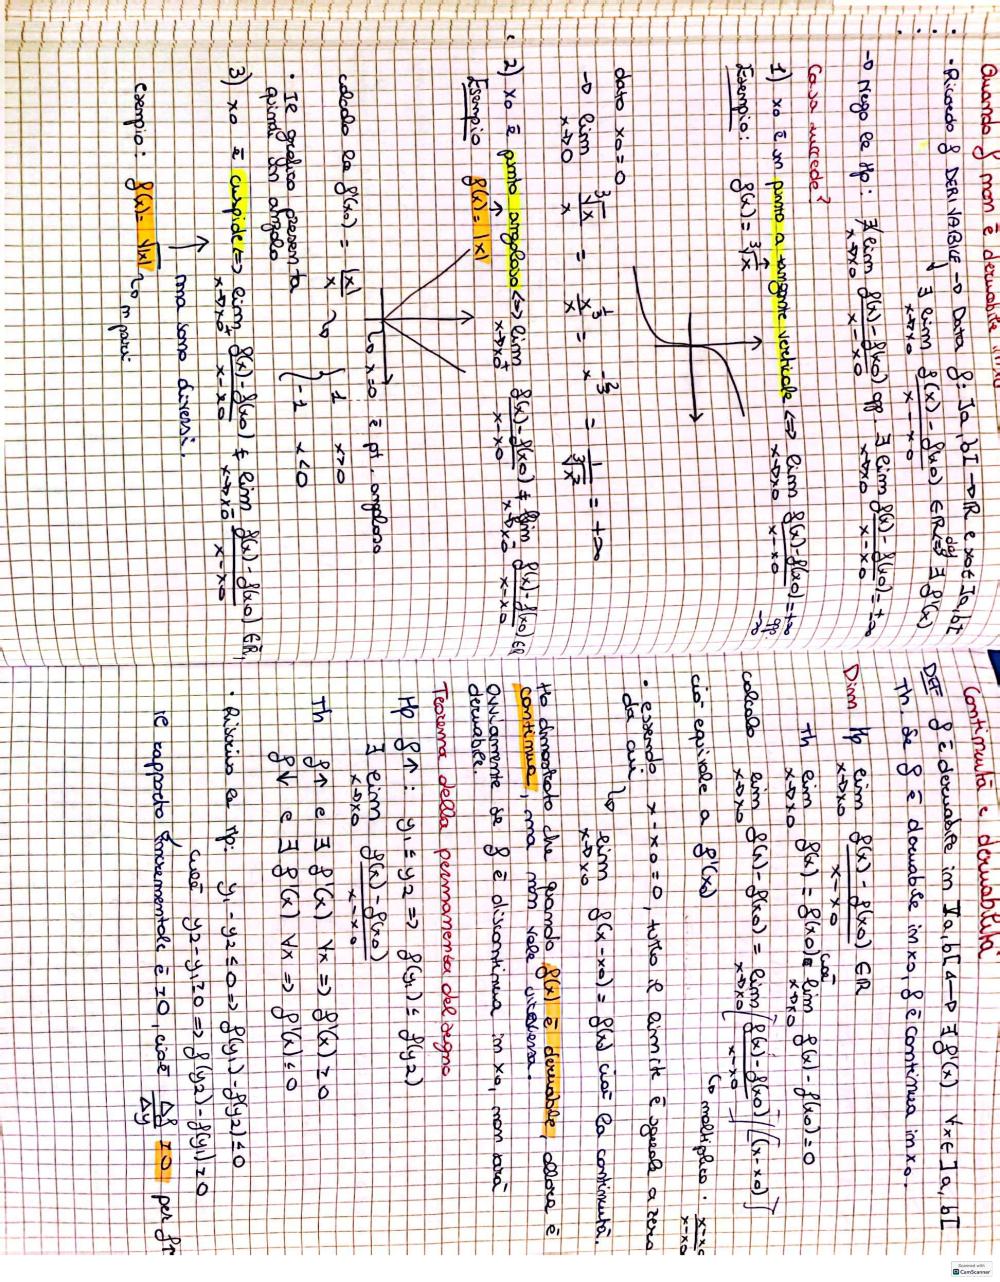 Quando f non è derivabile in x0
· Ricordo f DERIVABILE → Data f: ]a,b[ → R e x0 ∈ ]a,b[
∃ lim x→x0 f(x) - f(x0) / x - x0 ∈ R <=> def ∃ f'(x)
→ Nego le Hp: ∄ lim x→x0 f(x) - f(x0) / x - x0 opp. ∃ lim x→x0 f(x) - f(x0) / x - x0 = ±∞
Cosa succede?
1) x0 è un punto a tangente verticale <=> lim x→x0 f(x) - f(x0) / x - x0 = +∞ opp -∞
Esempio: f(x) = ∛x
dato x0 = 0
→ lim x→0 ∛x / x = x^⅓ / x = x^-⅔ = 1 / ∛x² = +∞
2) x0 è punto angoloso <=> lim x→x0+ f(x) - f(x0) / x - x0 ≠ lim x→x0- f(x) - f(x0) / x - x0 ∈ R
Esempio f(x) = |x|
x=0 è pt. angoloso
calcolo la f'(x0) = |x| / x { 1 x>0
-1 x<0
· Il grafico presenta
quindi un angolo
3) x0 è cuspide <=> lim x→x0+ f(x) - f(x0) / x - x0 ≠ lim x→x0- f(x) - f(x0) / x - x0 ∈ R,
ma sono diversi.
esempio: f(x) = √|x| pari
Continuità e derivabilità
DEF f è derivabile in ]a,b[ <-> ∃ f'(x) ∀x ∈ ]a,b[
Th. Se f è derivabile in x0, f è continua in x0.
Dim Hp lim x→x0 f(x) - f(x0) / x - x0 ∈ R
Th lim x→x0 f(x) = f(x0) cioè lim x→x0 f(x) - f(x0) = 0
calcolo lim x→x0 f(x) - f(x0) = lim x→x0 [ f(x) - f(x0) / x - x0 ] [(x - x0)]
moltiplico · x - x0 / x - x0
ciò equivale a f'(x0)
· essendo x - x0 = 0, tutto il limite è uguale a zero
da cui lim x→x0 f(x - x0) = f(x) cioè la continuità.
Ho dimostrato che quando f(x) è derivabile, allora è
continua, ma non vale viceversa.
Ovviamente se f è discontinua in x0, non sarà
derivabile.
Teorema della permanenza del segno
Hp f↑: y1 ≤ y2 => f(y1) ≤ f(y2)
∃ lim x→x0 f(x) - f(x0) / x - x0
Th f↑ e ∃ f'(x) ∀x => f'(x) ≥ 0
f↓ e ∃ f'(x) ∀x => f'(x) ≤ 0
· Riscrivo le Hp: y1 - y2 ≤ 0 => f(y1) - f(y2) ≤ 0
cioè y2 - y1 ≥ 0 => f(y2) - f(y1) ≥ 0
il rapporto incrementale è ≥ 0, cioè Δf / Δy ≥ 0 per f↑
Scanned with
CamScanner